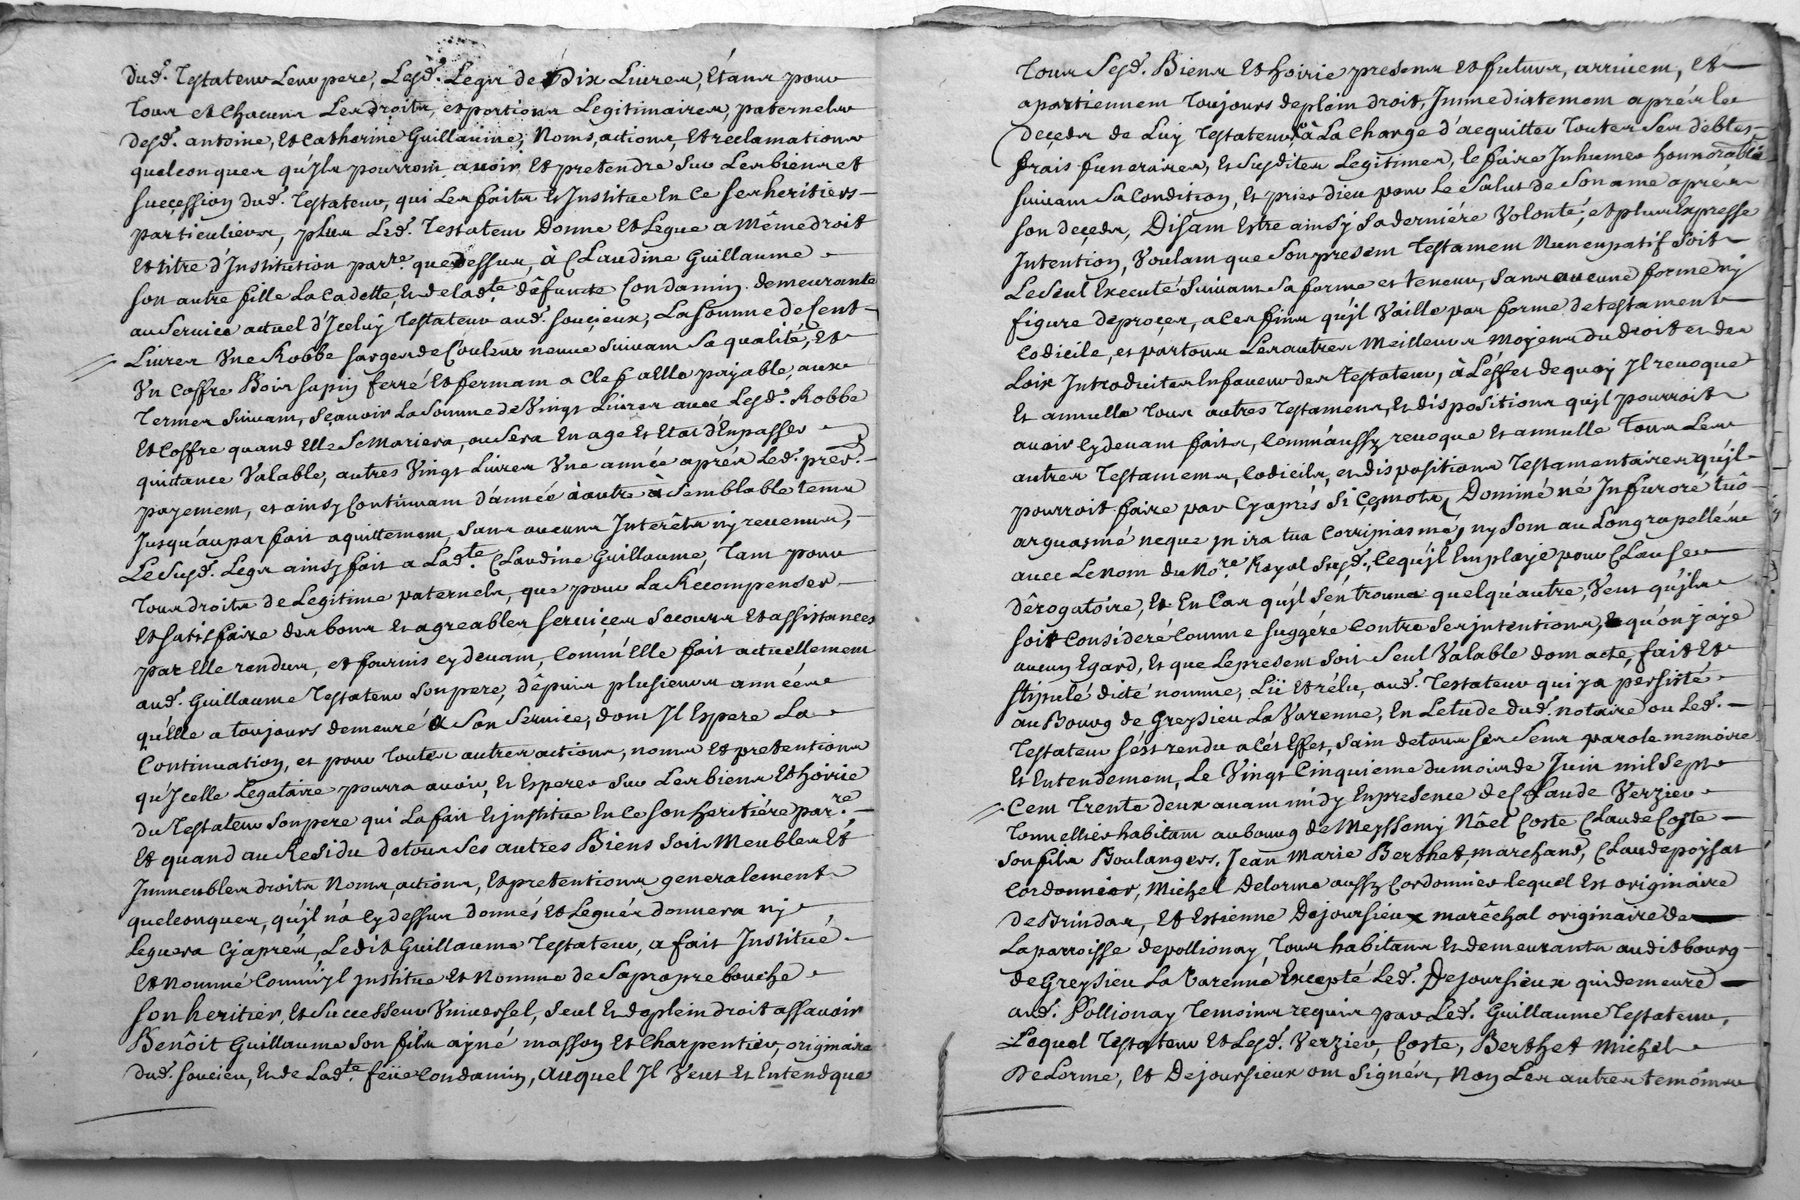 dud. Testateur Leur pere, Lesd. Legs de Dix Livres, Etans pour
tous et chacuns Les droits, et portions Legitimaires, paternels
desd. antoine, Et Catherine Guillaume, Noms, actions, Et reclamations
quelconques qu'ils pourront avoir, Et pretendre sur Les biens et
succession dud. Testateur, qui Les fait & Institue En ce ses heritiers
particuliers, plus Led. Testateur Donne Et Legue a Même droit
Et titre d'Institution parre. que Dessus, à Claudine Guillaume
son autre fille La Cadette, Et de ladte. défunte Condamin demeurante
au Service actuel d'Iceluy Testateur aud. soucieux, La somme de Cent
Livres Une Robbe sarge de Couleur neuve suivant Sa qualité, Et
Un Coffre Bois sapin ferré Et fermant a Clef a Elle payable, aux
Termes Suivans, Sçavoir La somme de Vingt Livres avec Lesd. Robbe
Et Coffre quand Elle Se Mariera, ou Sera En age Et Etat d'En passer
quittance Valable, autres Vingt Livres Une année aprés Led. prer.
payement, et ainsy Continuant d'année à autre à Semblable tems
Jusqu'au parfait aquittement, Sans aucuns Interêts ny revenus,
Le Susd. Legs ainsy fait a Ladte. Claudine Guillaume, Tant pour
tous droits de Legitime paternels, que pour La Recompenser
Et satisfaire des bons Et agreables services Secours Et assistances
par Elle rendus, et fournis cy devant, Comm'Elle fait actuellement
aud. Guillaume Testateur Son pere, dépuis plusieurs années
qu'Elle a toujours demeuré a Son Service, dont Il Espere La
Continuation, et pour toutes autres actions, noms Et pretentions
qu'Icelle Legataire pourra avoir, Et Esperer Sur Les biens Et hoirie
du Testateur Son pere qui La fait & institue En ce Son heritiére parre.
Et quand au Residu de tous Ses autres Biens Soit Meubles Et
Immeubles droits Noms, actions, Et pretentions generalement
quelconques, qu'il n'a cy dessus donnés Et Legués donnera ny
Leguera Cy aprés, Ledit Guillaume Testateur, a fait Institué
Et Nommé Comm'Il Institue Et Nomme de Sa propre bouche
Son heritier, Et Successeur Universel, Seul Et de plein droit assavoir
Benôit Guillaume Son fils ayné masson Et Charpentier, originaire
dud. soucieu, Et de Ladte. feüe Condamin, auquel Il Veut Et Entend que
Tous Sesd. Biens Et hoirie presens Et futurs, arrivent, Et
apartiennent Toujours de plein droit, Immediatement aprés le
deçeds de Luy Testateur, à La Charge d'acquitter toutes Ses debtes,
frais funeraires, Et Susdites Legitimes, le faire Inhumer honnorable
suivant Sa Condition, Et prier dieu pour Le Salut de Son ame aprés
son deçeds, Disant Estre ainsy Sa derniére Volonté, et plus Expresse
Intention, Voulant que Son present Testament Nuncupatif Soit
Le Seul Executé Suivant Sa forme et teneur, Sans aucune forme ny
figure de procez, a Ces fins qu'il Vaille par forme de testament
Codicile, et par tous Les autres Meilleurs Moyens du droit et des
Loix Introduites En faveur des Testateurs, à L'effet de quoy Il revoque
Et annulle tous autres Testamens, Et dispositions qu'il pourroit
avoir Cy devant faits, Comm'aussy revoque Et annulle tous Les
autres Testamens, Codicils, et dispositions Testamentaires qu'il
pourroit faire par Cy aprés Si Ces mots, Dominé né In furoré tuó
arguas mé neque In ira tua Corripias mé, ny Sont au Long rapellés
avec Le Nom du Nore. Royal Susd., Ce qu'il Employe pour Clause
dérogatoire, Et En Cas qu'il S'en trouva quelqu'autre, Veut qu'ils
soit Consideré Comme suggéré Contre Ses intentions, & qu'on n'y aje
aucun Egard, Et que Le present Soit Seul Valable dont acte, fait Et
stipulé dicté nommé, Lü Et rélu, aud. Testateur qui y a persisté
au Bourg de Greysieu La Varenne, En L'etude dud. notaire ou Led.
Testateur s'ést rendu a Cés Effet, Sain de tous Ses Sens parole memoire
Et Entendement, Le Vingt Cinquieme du mois de Juin mil Sept
Cent Trente deux avant midy En presence de Claude Verzieu
Tonnellier habitant au bourg de Meyssemy Nöel Coste Claude Coste
Son fils Boulangers, Jean Marie Berthet, marchand, Claude poysat
Cordonnier, Michel Delorme aussy Cordonnier lequel Est originaire
de Brindas, Et Estienne Dejoursieux maréchal originaire de
La parroisse de pollionay, Tous habitans Et demeurants audit bourg
de Greysieu La Varenne Excepté Led. Dejoursieux qui demeure
aud. Pollionay Temoins requis par Led. Guillaume Testateur,
Lequel Testateur Et Lesd. Verzieu, Coste, Berthet Michel
De Lorme, Et Dejoursieux ont Signés, Non Les autres temoins